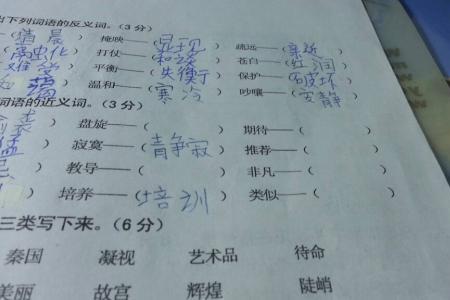 出下列词语的反义词。(3分)
(清晨 掩映——(显现) 疏远——(亲近
打仗——(和谈) 苍白——(红润
难受 平衡——(失衡) 保护——(破坏
温和——(寒冷 吵嚷——(安静
词语的近义词。(3分)
盘旋——( ) 期待——( )
寂寞——(静寂 推荐——( )
教导——( ) 非凡——( )
培养——(培训) 类似——( )
三类写下来。(6分)
秦国 凝视 艺术品 待命
美丽 故宫 辉煌 陡峭